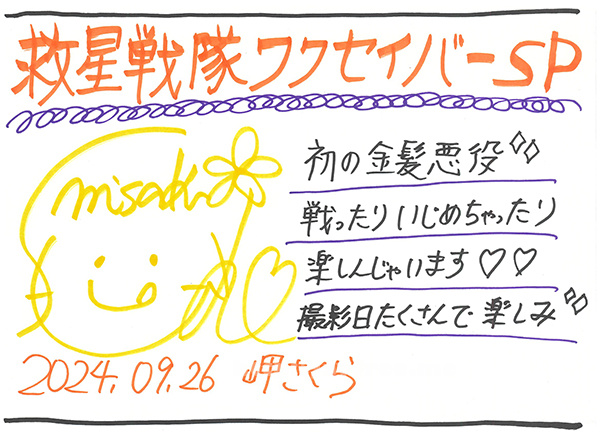 救星戦隊ワクセイバーSP
misaki
初の金髪悪役
戦ったりいじめちゃったり
楽しんじゃいます♡♡
撮影日たくさんで楽しみ
2024.09.26 岬さくら